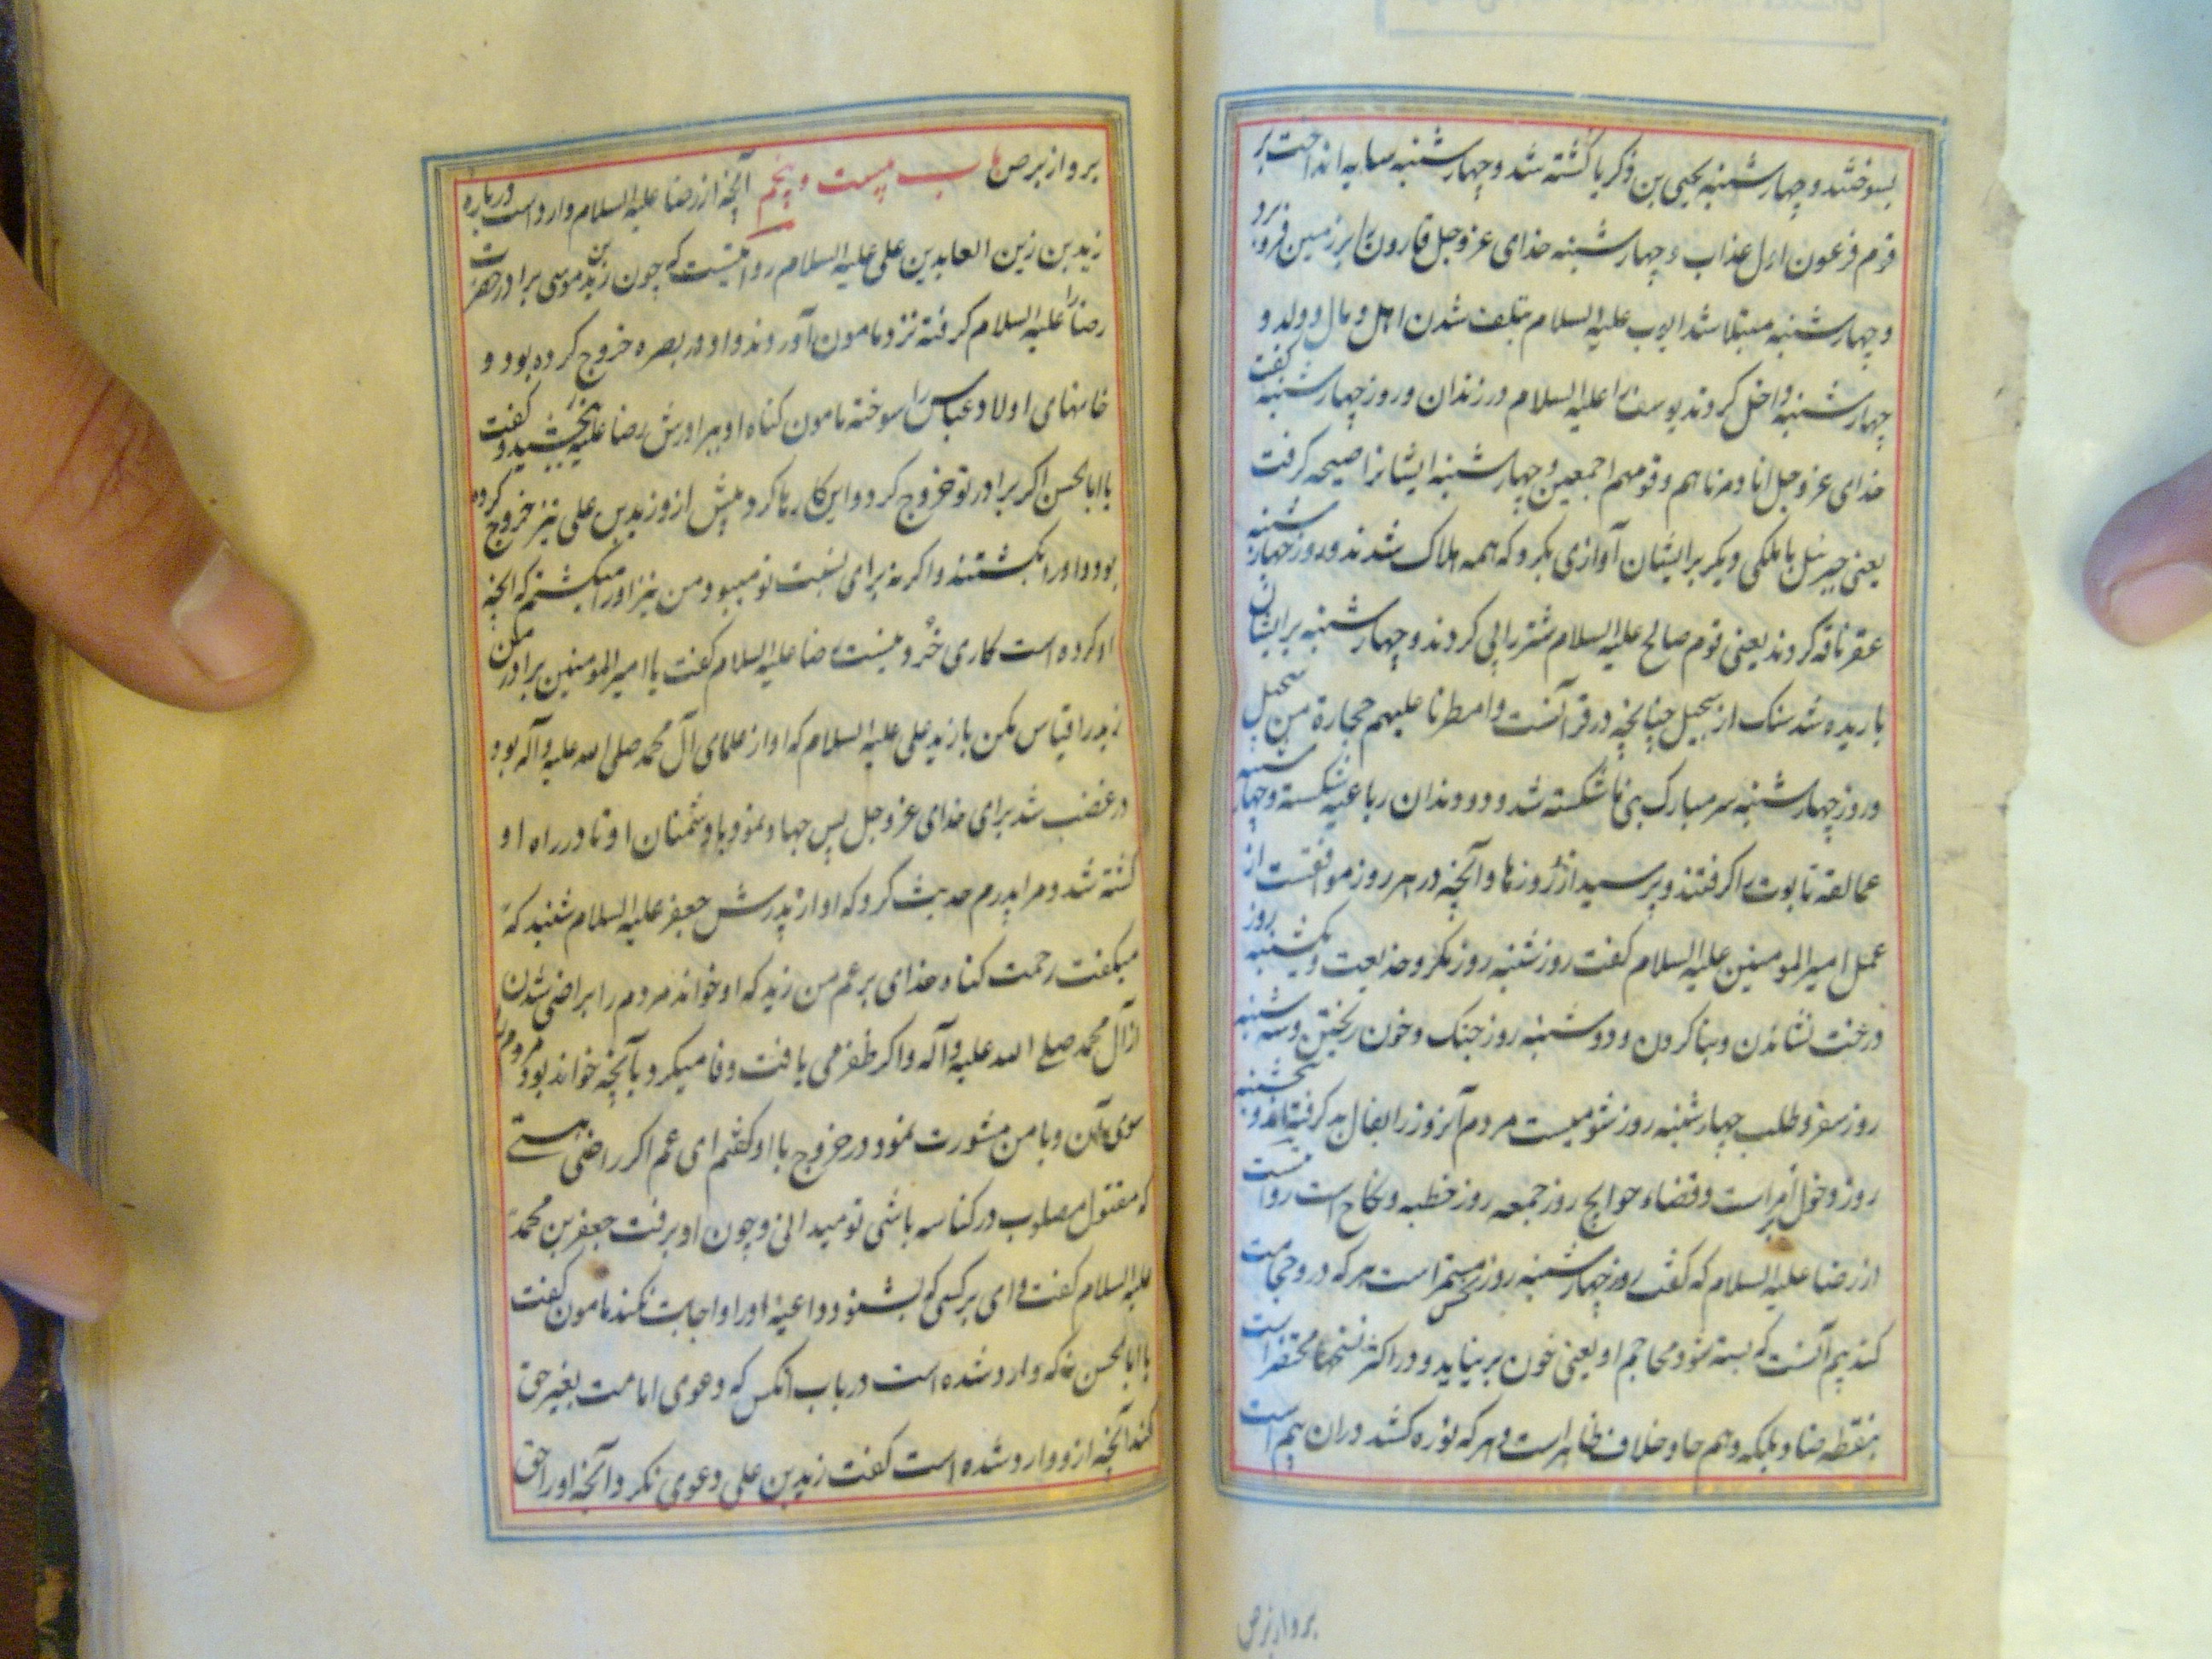 بسوختند و چهارشنبه یحیی بن ذکریا کشته شد و چهارشنبه سایه انداخت بر
قوم فرعون اول عذاب و چهارشنبه خدای عزوجل قارون را بزمین فرو برد
و چهارشنبه مبتلا شد ایوب علیه السلام بتلف شدن اهل و مال و ولد و
چهارشنبه داخل کردند یوسف را علیه السلام در زندان و روز چهارشنبه گفت
خدای عزوجل انا دمرناهم و قومهم اجمعین و چهارشنبه ایشانرا صیحه گرفت
یعنی جبرئیل یا ملکی دیگر برایشان آوازی بکرد که همه هلاک شدند و روز چهارشنبه
عقر ناقه کردند یعنی قوم صالح علیه السلام شتر را پی کردند و چهارشنبه برایشان
باریده شد سنک از سجیل چنانچه در قرآنست و امطرنا علیهم حجارة من سجیل
و روز چهارشنبه سر مبارک نبی ما شکسته شد و دو دندان رباعیه شکسته و چهارشنبه
عمالقه تابوت را گرفتند و پرسید از روزها و آنچه در هر روز موافقست از
عمل امیرالمومنین علیه السلام گفت روز شنبه روز مکر و خدیعت و یکشنبه روز
درخت نشاندن و بنا کردن و دوشنبه روز جنک و خون ریختن و سه شنبه
روز سفر و طلب چهارشنبه روز شومیست مردم آنروز را بفال بد گرفته اند و پنجشنبه
روز دخول امراست و قضاء حوایج روز جمعه روز خطبه و نکاح است روایتست
از رضا علیه السلام که گفت روز چهارشنبه روز نحس مستمر است هر که درو حجامت
کند بیم آنست که بسته شود محاجم او یعنی خون بر نیاید و در اکثر نسخها محتضر است
بنقطه ضاد بلکه وهم حاو خلاف ظاهر است و هر که نوره کشد دران بیم است
بروا ز برص
بروا ز برص باب بیست و پنجم آنچه از رضا علیه السلام وارد است در باره
زید بن زین العابدین علی علیه السلام روایتست که چون زید بن موسی برادر حضرت
رضا را علیه السلام گرفته نزد مامون آوردند و او در بصره خروج کرده بود و
خانهای اولاد عباس را سوخته مامون گناه او ببرادرش رضا علیه بخشید و گفت
یا ابالحسن اگر برادر تو خروج کرد و این کارها کرد پیش ازو زید بن علی نیز خروج کرده
بود و او را بکشتند و اگر نه برای نسبت تو میبود من نیز او را میکشتم که آنچه
او کرده است کاری خرد نیست رضا علیه السلام گفت یا امیرالمومنین برادر من
زید را قیاس مکن با زید علی علیه السلام که او از علمای آل محمد صلی الله علیه و آله بود
در غضب شد برای خدای عزوجل پس جهاد نمود با دشمنان او تا در راه او
کشته شد و مرا پدرم حدیث کرد که او از پدرش جعفر علیه السلام شنید که
میگفت رحمت کناد خدای بر عم من زید که او خواند مردم را براضی شدن
از آل محمد صلی الله علیه و آله و اگر ظفر می یافت وفا میکرد بآنچه خوانده بود مردم را
سوی آن و با من مشورت نمود در خروج با او گفتم ای عم اگر راضی هستی
که مقتول مصلوب در کناسه باشی تو میدانی و چون او برفت جعفر بن محمد
علیه السلام گفت وای بر کسی که بشنود داعیه او را و اجابت نکند مامون گفت
یا ابالحسن نه که وارد شده است در باب انکس که دعوی امامت بغیر حق
کند آنچه ازو وارد شده است گفت زید بن علی دعوی نکرد آنچه او را حق